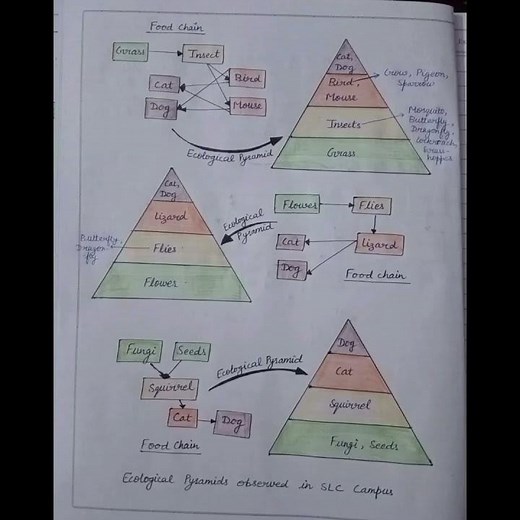 Food Chain
Grass
Insect
Cat
Bird
Dog
Mouse
Ecological Pyramid
Cat,
Dog
Bird,
Mouse
Insects
Grass
Crow, Pigeon,
Sparrow
Mosquito,
Butterfly,
Dragonfly,
Cockroach,
Grass-
hopper
Cat,
Dog
Lizard
Flies
Flower
Butterfly,
Dragon-
fly
Ecological
Pyramid
Flower
Flies
Cat
Lizard
Dog
Food chain
Fungi
Seeds
Squirrel
Cat
Dog
Food Chain
Ecological Pyramid
Dog
Cat
Squirrel
Fungi, Seeds
Ecological Pyramids observed in SLC Campus